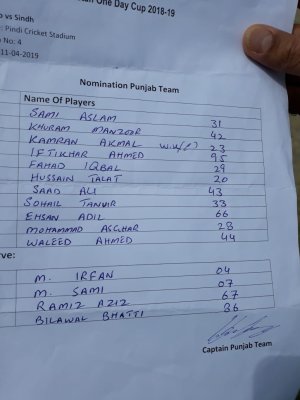 an One Day Cup 2018-19
b vs Sindh
: Pindi Cricket Stadium
h No: 4
11-04-2019
Nomination Punjab Team
Name Of Players
SAMI ASLAM 31
KHURAM MANZOOR 42
KAMRAN AKMAL 23
IFTIKHAR AHMED 95
FAHAD IQBAL 29
HUSSAIN TALAT 20
SAAD ALI 43
SOHAIL TANVIR 33
EHSAN ADIL 66
MOHAMMAD ASGHAR 28
WALEED AHMED 44
rve:
M. IRFAN 04
M. SAMI 07
RAMIZ AZIZ 67
BILAWAL BHATTI 86
Captain Punjab Team